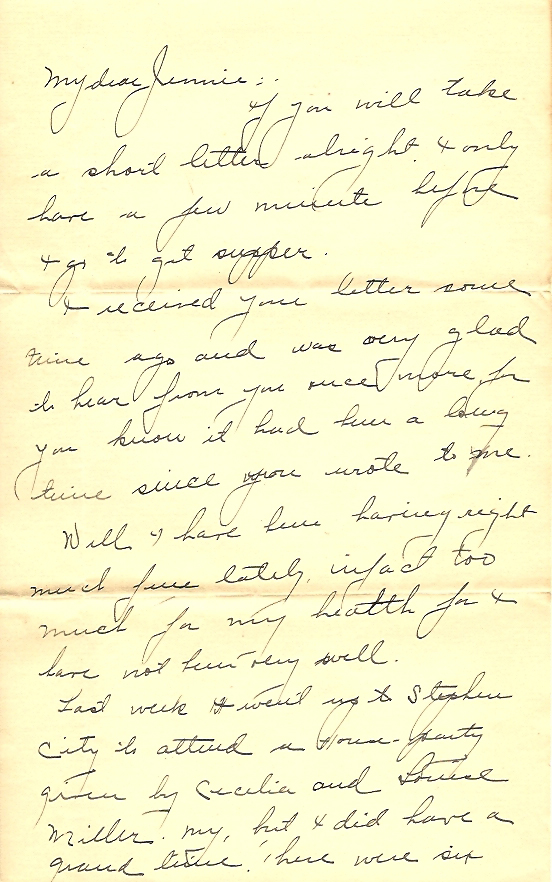 My dear Jennie:.
If you will take
a short letter alright. I only
have a few minute before
I go to get supper.
I received your letter some
time ago and was very glad
to hear from you once more, for
you know it had been a long
time since you wrote to me.
Well I have been having right
much fun lately, infact too
much for my health for I
have not been very well.
Last week I went up to Stephen
City to attend a House-party
given by Cecilia and Louise
Miller. My, but I did have a
grand time. There were six